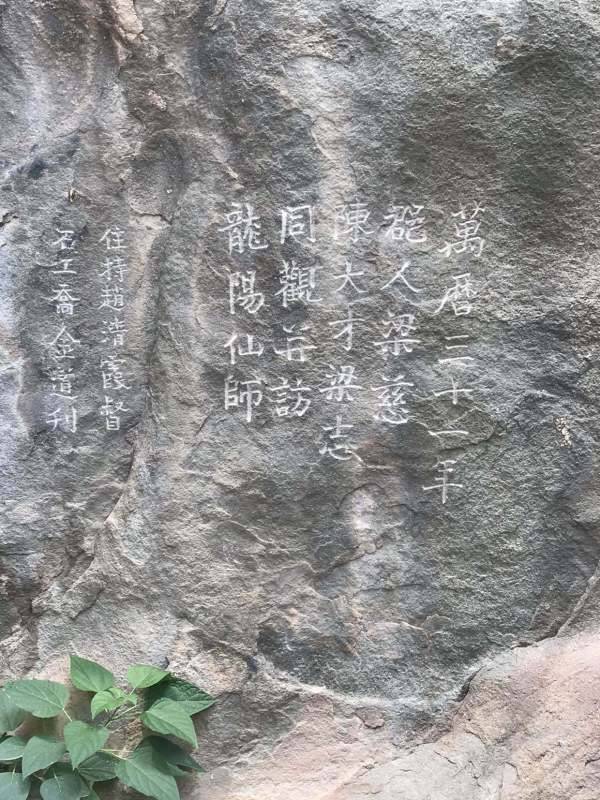 萬曆三十一年
郡人梁慈
陳大才梁志
同觀并訪
龍陽仙師
住持趙清霞督
石工喬金道刊